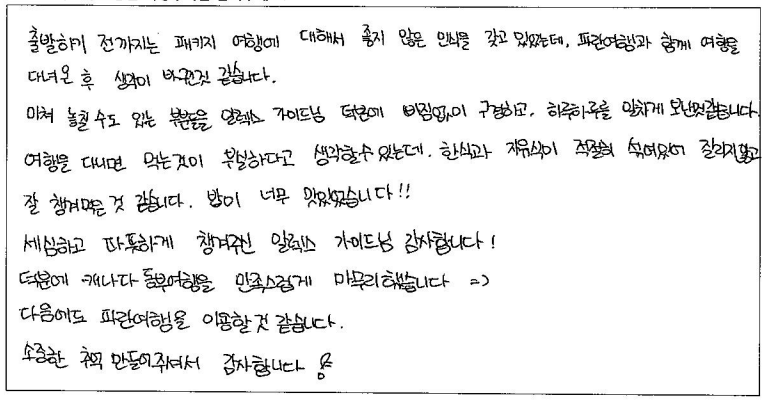 출발하기 전까지는 패키지 여행에 대해서 좋지 않은 인식을 갖고 있었는데, 파란여행과 함께 여행을
다녀온 후 생각이 바뀐것 같습니다.
미쳐 놓칠 수도 있는 부분들을 알렉스 가이드님 덕분에 빠짐없이 구경하고, 하루하루를 알차게 보낸것같습니다.
여행을 다니면 먹는것이 부실하다고 생각할수 있는데, 한식과 자유식이 적절히 섞여있어 질리지않고
잘 챙겨먹은 것 같습니다. 밥이 너무 맛있었습니다!!
세심하고 따뜻하게 챙겨주신 알렉스 가이드님 감사합니다!
덕분에 캐나다 동부여행을 만족스럽게 마무리했습니다 =)
다음에도 파란여행을 이용할것 같습니다.
소중한 추억 만들어주셔서 감사합니다